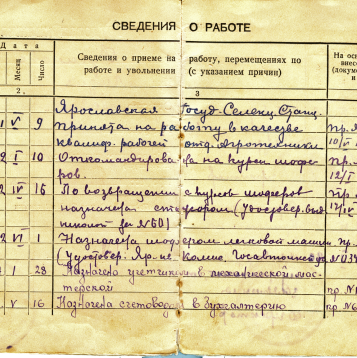 СВЕДЕНИЯ О РАБОТЕ
Дата
Месяц
Число
Сведения о приеме на работу, перемещениях по
работе и увольнении (с указанием причин)
На ос
внес
(доку
2. 3
Ярославская Госуд. Селекц. Станц.
V 9 принята на работу в качестве пр.
квалиф. рабочей отд. Агротехники 10/
2 I 10 Откомандирована на курсы шофе- пр.
ров. 12/I
2 IV 16 По возвращении с курсов шоферов пр.
назначена шофером (Удостовер. 17/IV
школы за № 60)
2 VI 1 Назначена шофером легковой машин. пр.
(Удостовер. Яр. Комис. Госавтоинсп.
I 28 Назначена учетчиком в механической мас- 
терской пр №
V 16 Назначена счетоводом в Бухгалтерию пр № 6